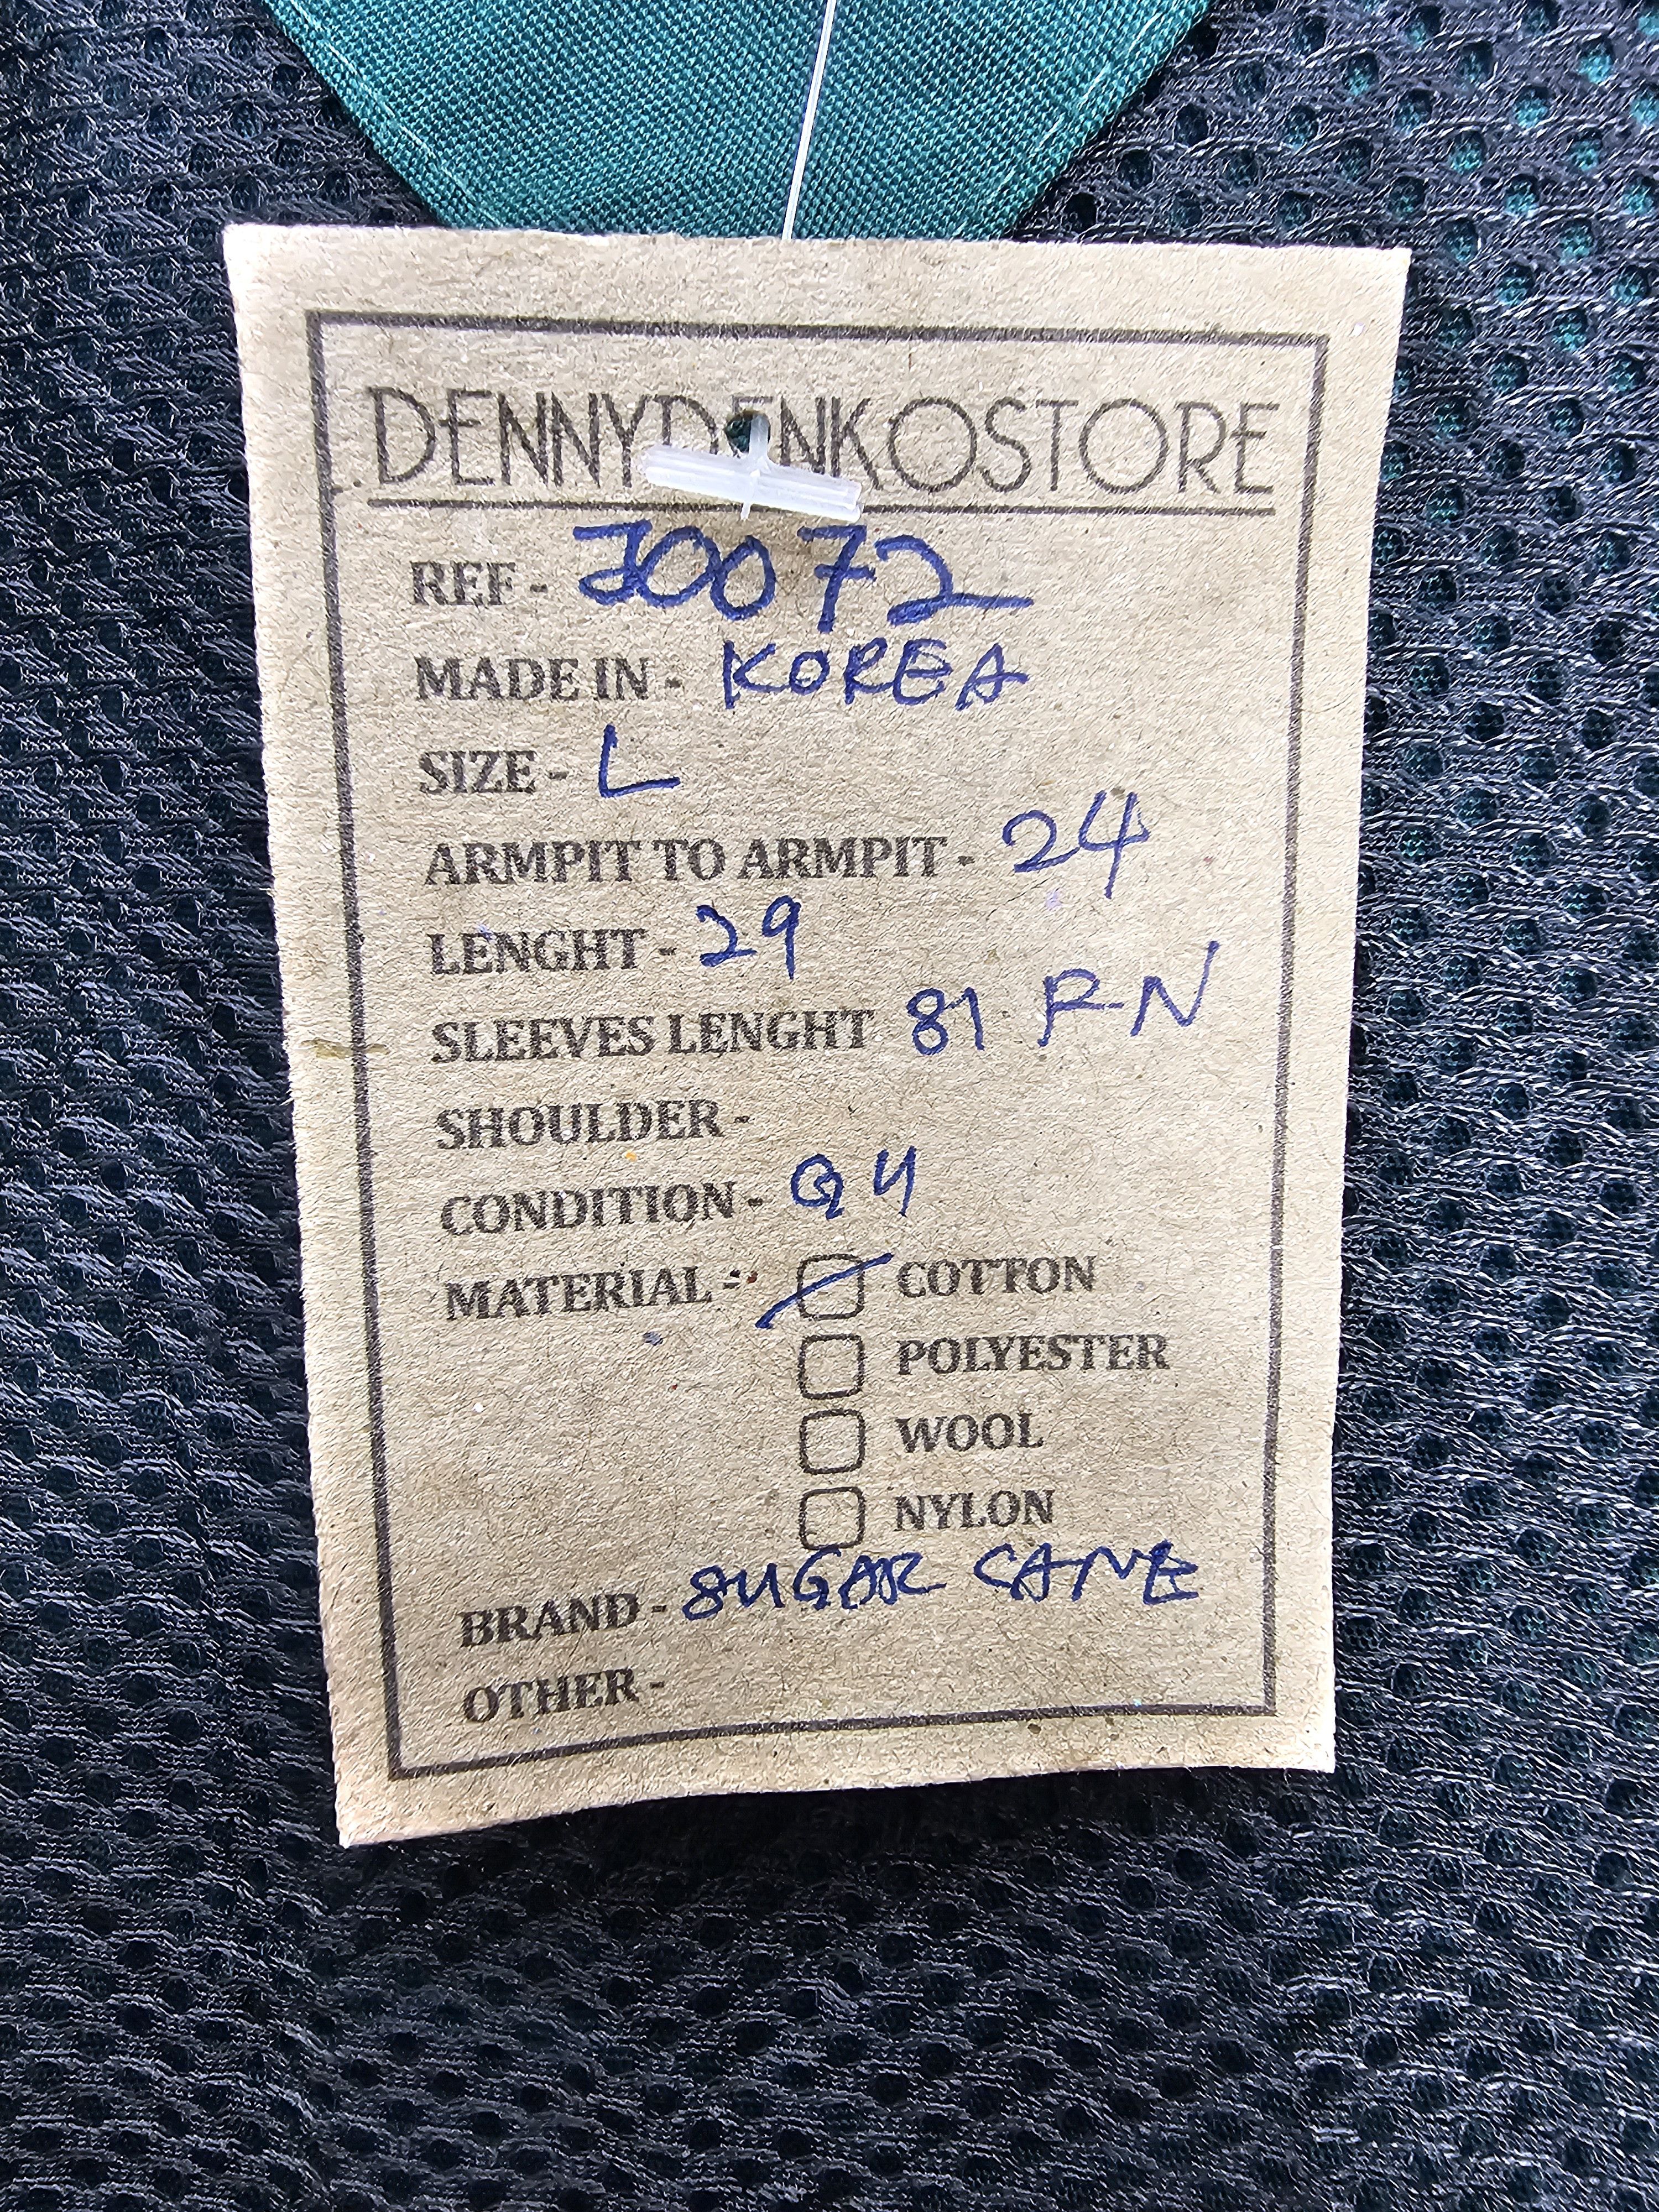 DENNYDENKOSTORE
REF - J0072
MADE IN - KOREA
SIZE - L
ARMPIT TO ARMPIT - 24
LENGHT - 29
SLEEVES LENGHT 81 R-N
SHOULDER -
CONDITION - G4
MATERIAL - COTTON
POLYESTER
WOOL
NYLON
BRAND - SUGAR CANE
OTHER -